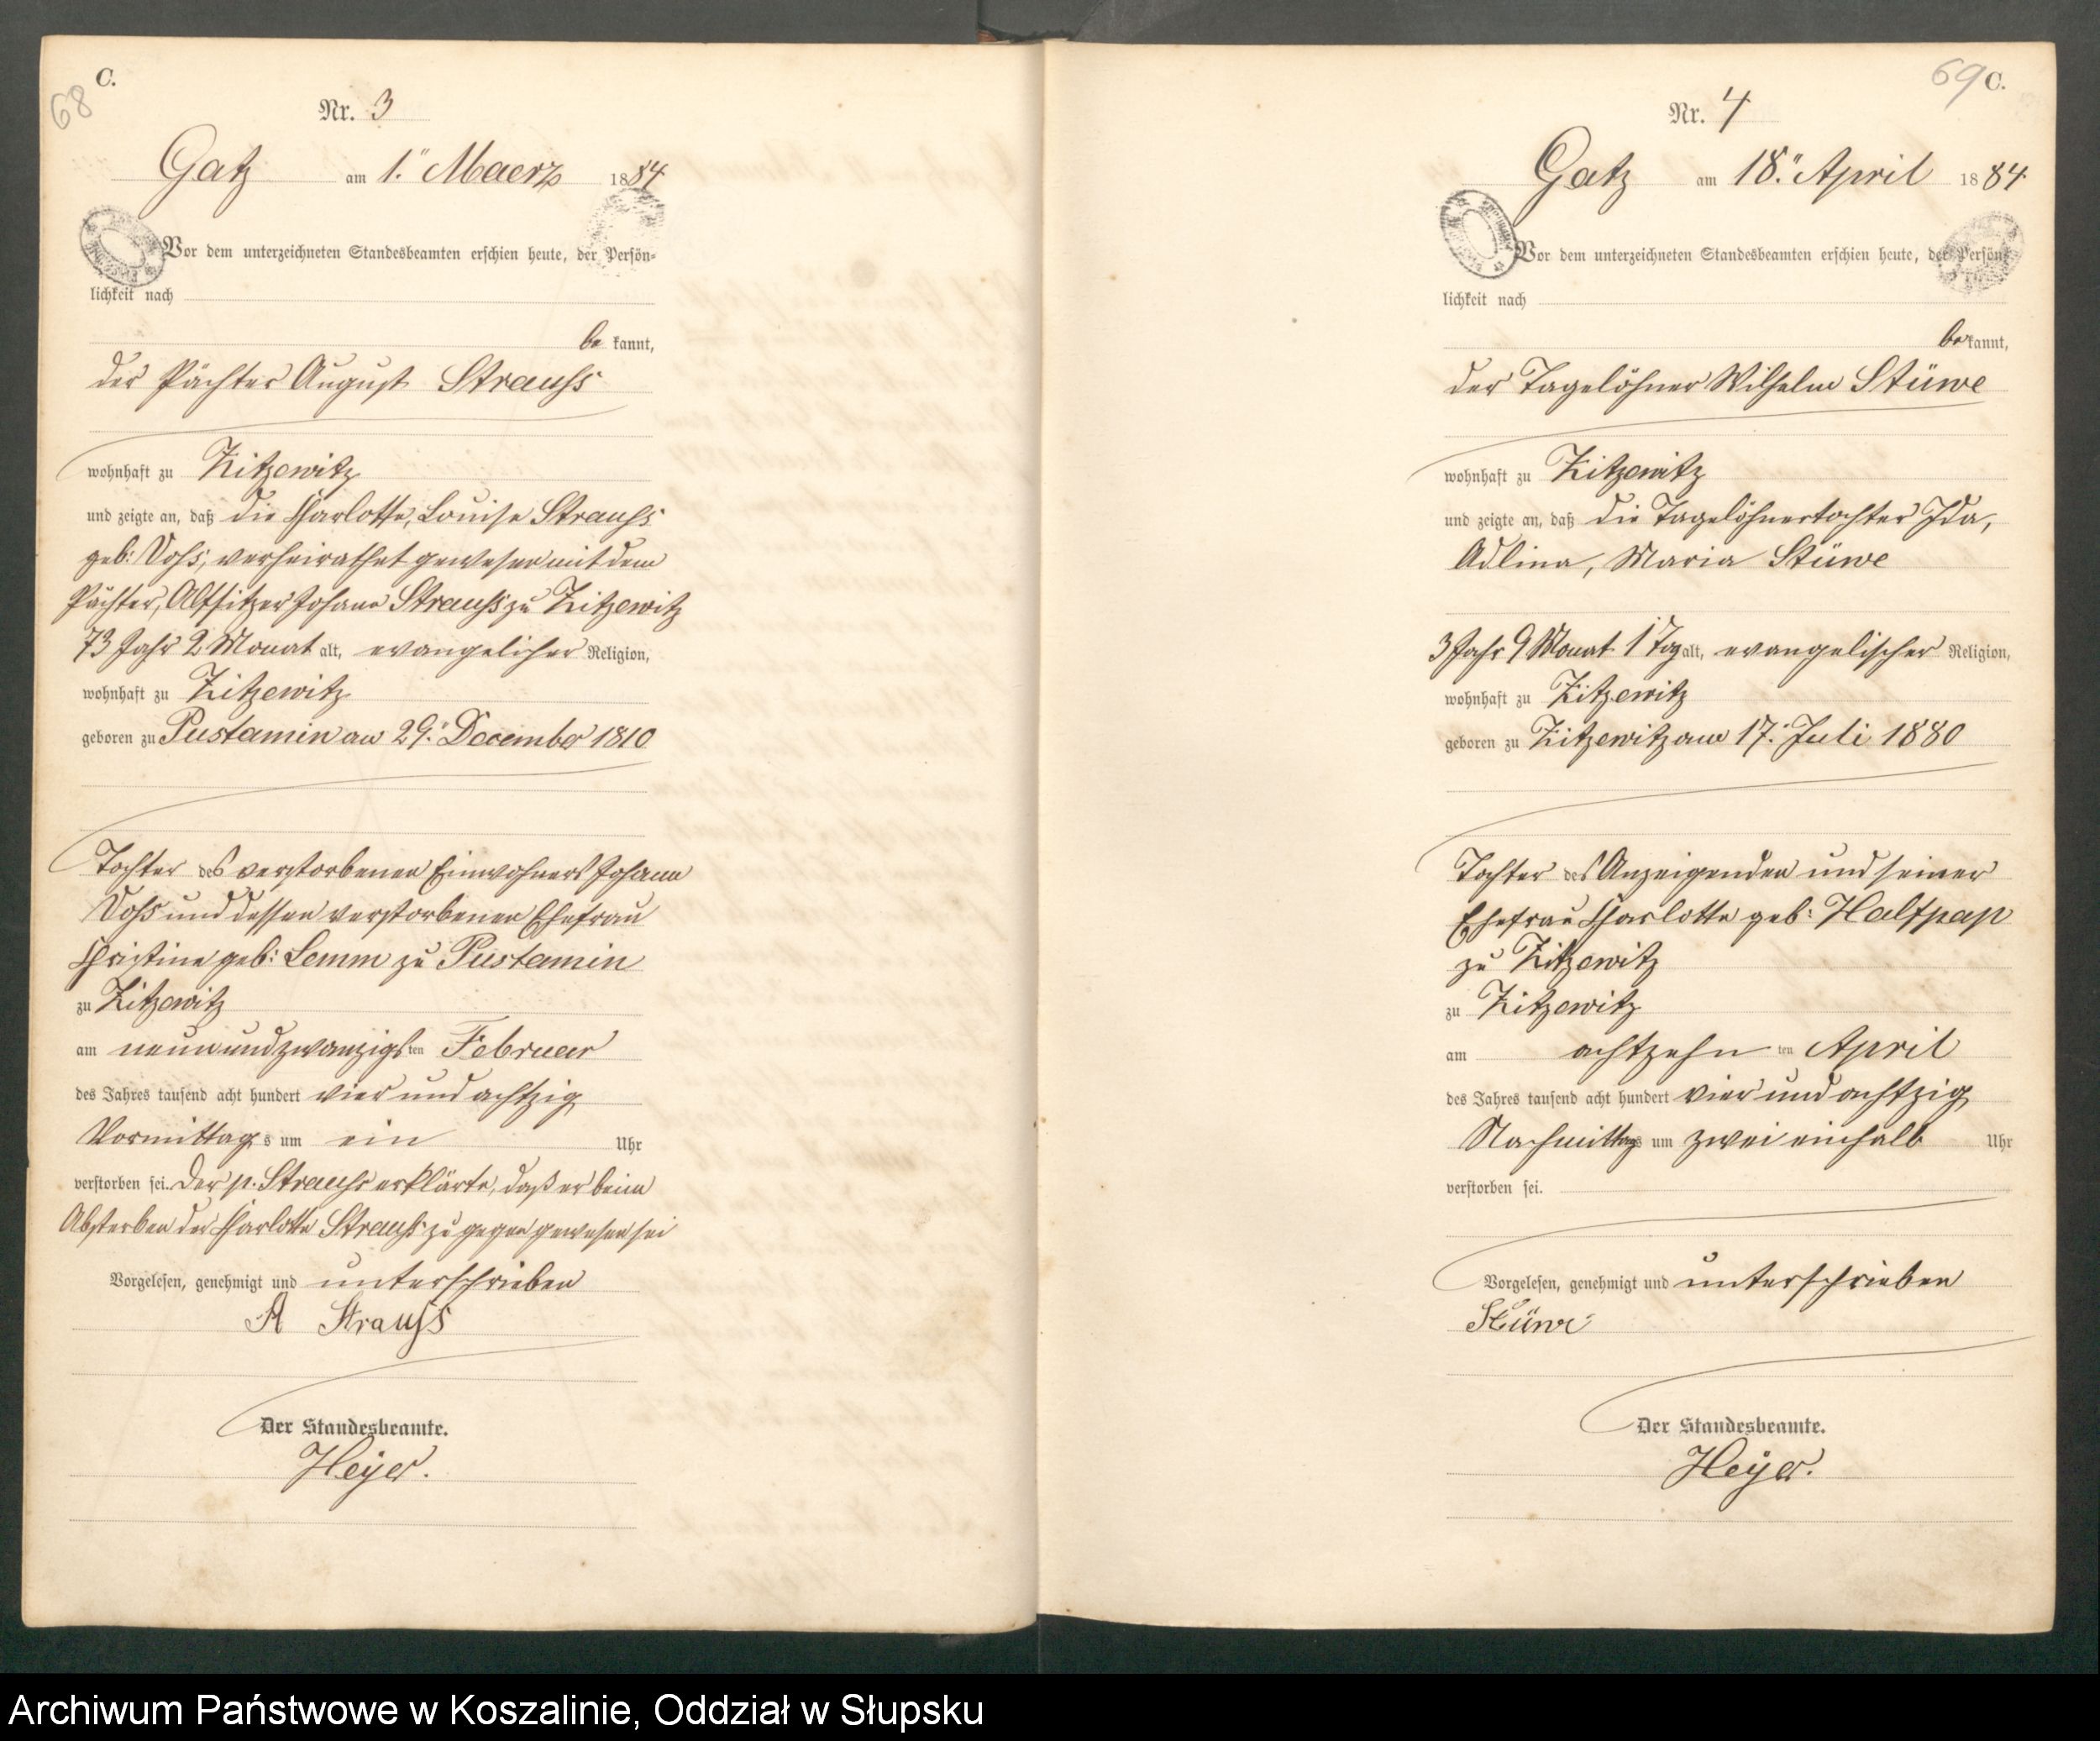 68
C.
Nr. 3
Gatz am 1. Maerz 1884
Vor dem unterzeichneten Standesbeamten erschien heute, der Persön-
lichkeit nach
be kannt,
der Pächter August Strauss
wohnhaft zu Zitzewitz
und zeigte an, daß die Charlotte, Louise Strauss
geb: Voss, verheirathet gewesen mit dem
Pächter, Altsitzer Johann Strauss zu Zitzewitz
73 Jahr 2 Monat alt, evangelicher Religion,
wohnhaft zu Zitzewitz
geboren zu Pustamin am 29. December 1810
Tochter des verstorbenen Einwohners Johann
Voss und dessen verstorbenen Ehefrau
Christine geb: Lemm zu Pustamin
zu Zitzewitz
am neunundzwanzigsten Februar
des Jahres tausend acht hundert vier und achtzig
Vormittags um ein Uhr
verstorben sei. Der p. Strauss erklärte, daß er beim
Absterben der Charlotte Strauss zu gegen gewesen sei
Vorgelesen, genehmigt und unterschrieben
A Strauss
Der Standesbeamte.
Heyer.
69 C.
Nr. 4
Gatz am 18. April 1884
Vor dem unterzeichneten Standesbeamten erschien heute, der Persön-
lichkeit nach
be kannt,
der Tagelöhner Wilhelm Stüwe
wohnhaft zu Zitzewitz
und zeigte an, daß die Tagelöhnertochter Ida,
Adlina, Maria Stüwe
3 Jahr 9 Monat 1 Tag alt, evangelischer Religion,
wohnhaft zu Zitzewitz
geboren zu Zitzewitz am 17. Juli 1880
Tochter des Anzeigenden und seiner
Ehefrau Charlotte geb: Halfpap
zu Zitzewitz
zu Zitzewitz
am achtzehn ten April
des Jahres tausend acht hundert vier und achtzig
Nachmittags um zwei einhalb Uhr
verstorben sei.
Vorgelesen, genehmigt und unterschrieben
Stüwe
Der Standesbeamte.
Heyer.
Archiwum Państwowe w Koszalinie, Oddział w Słupsku